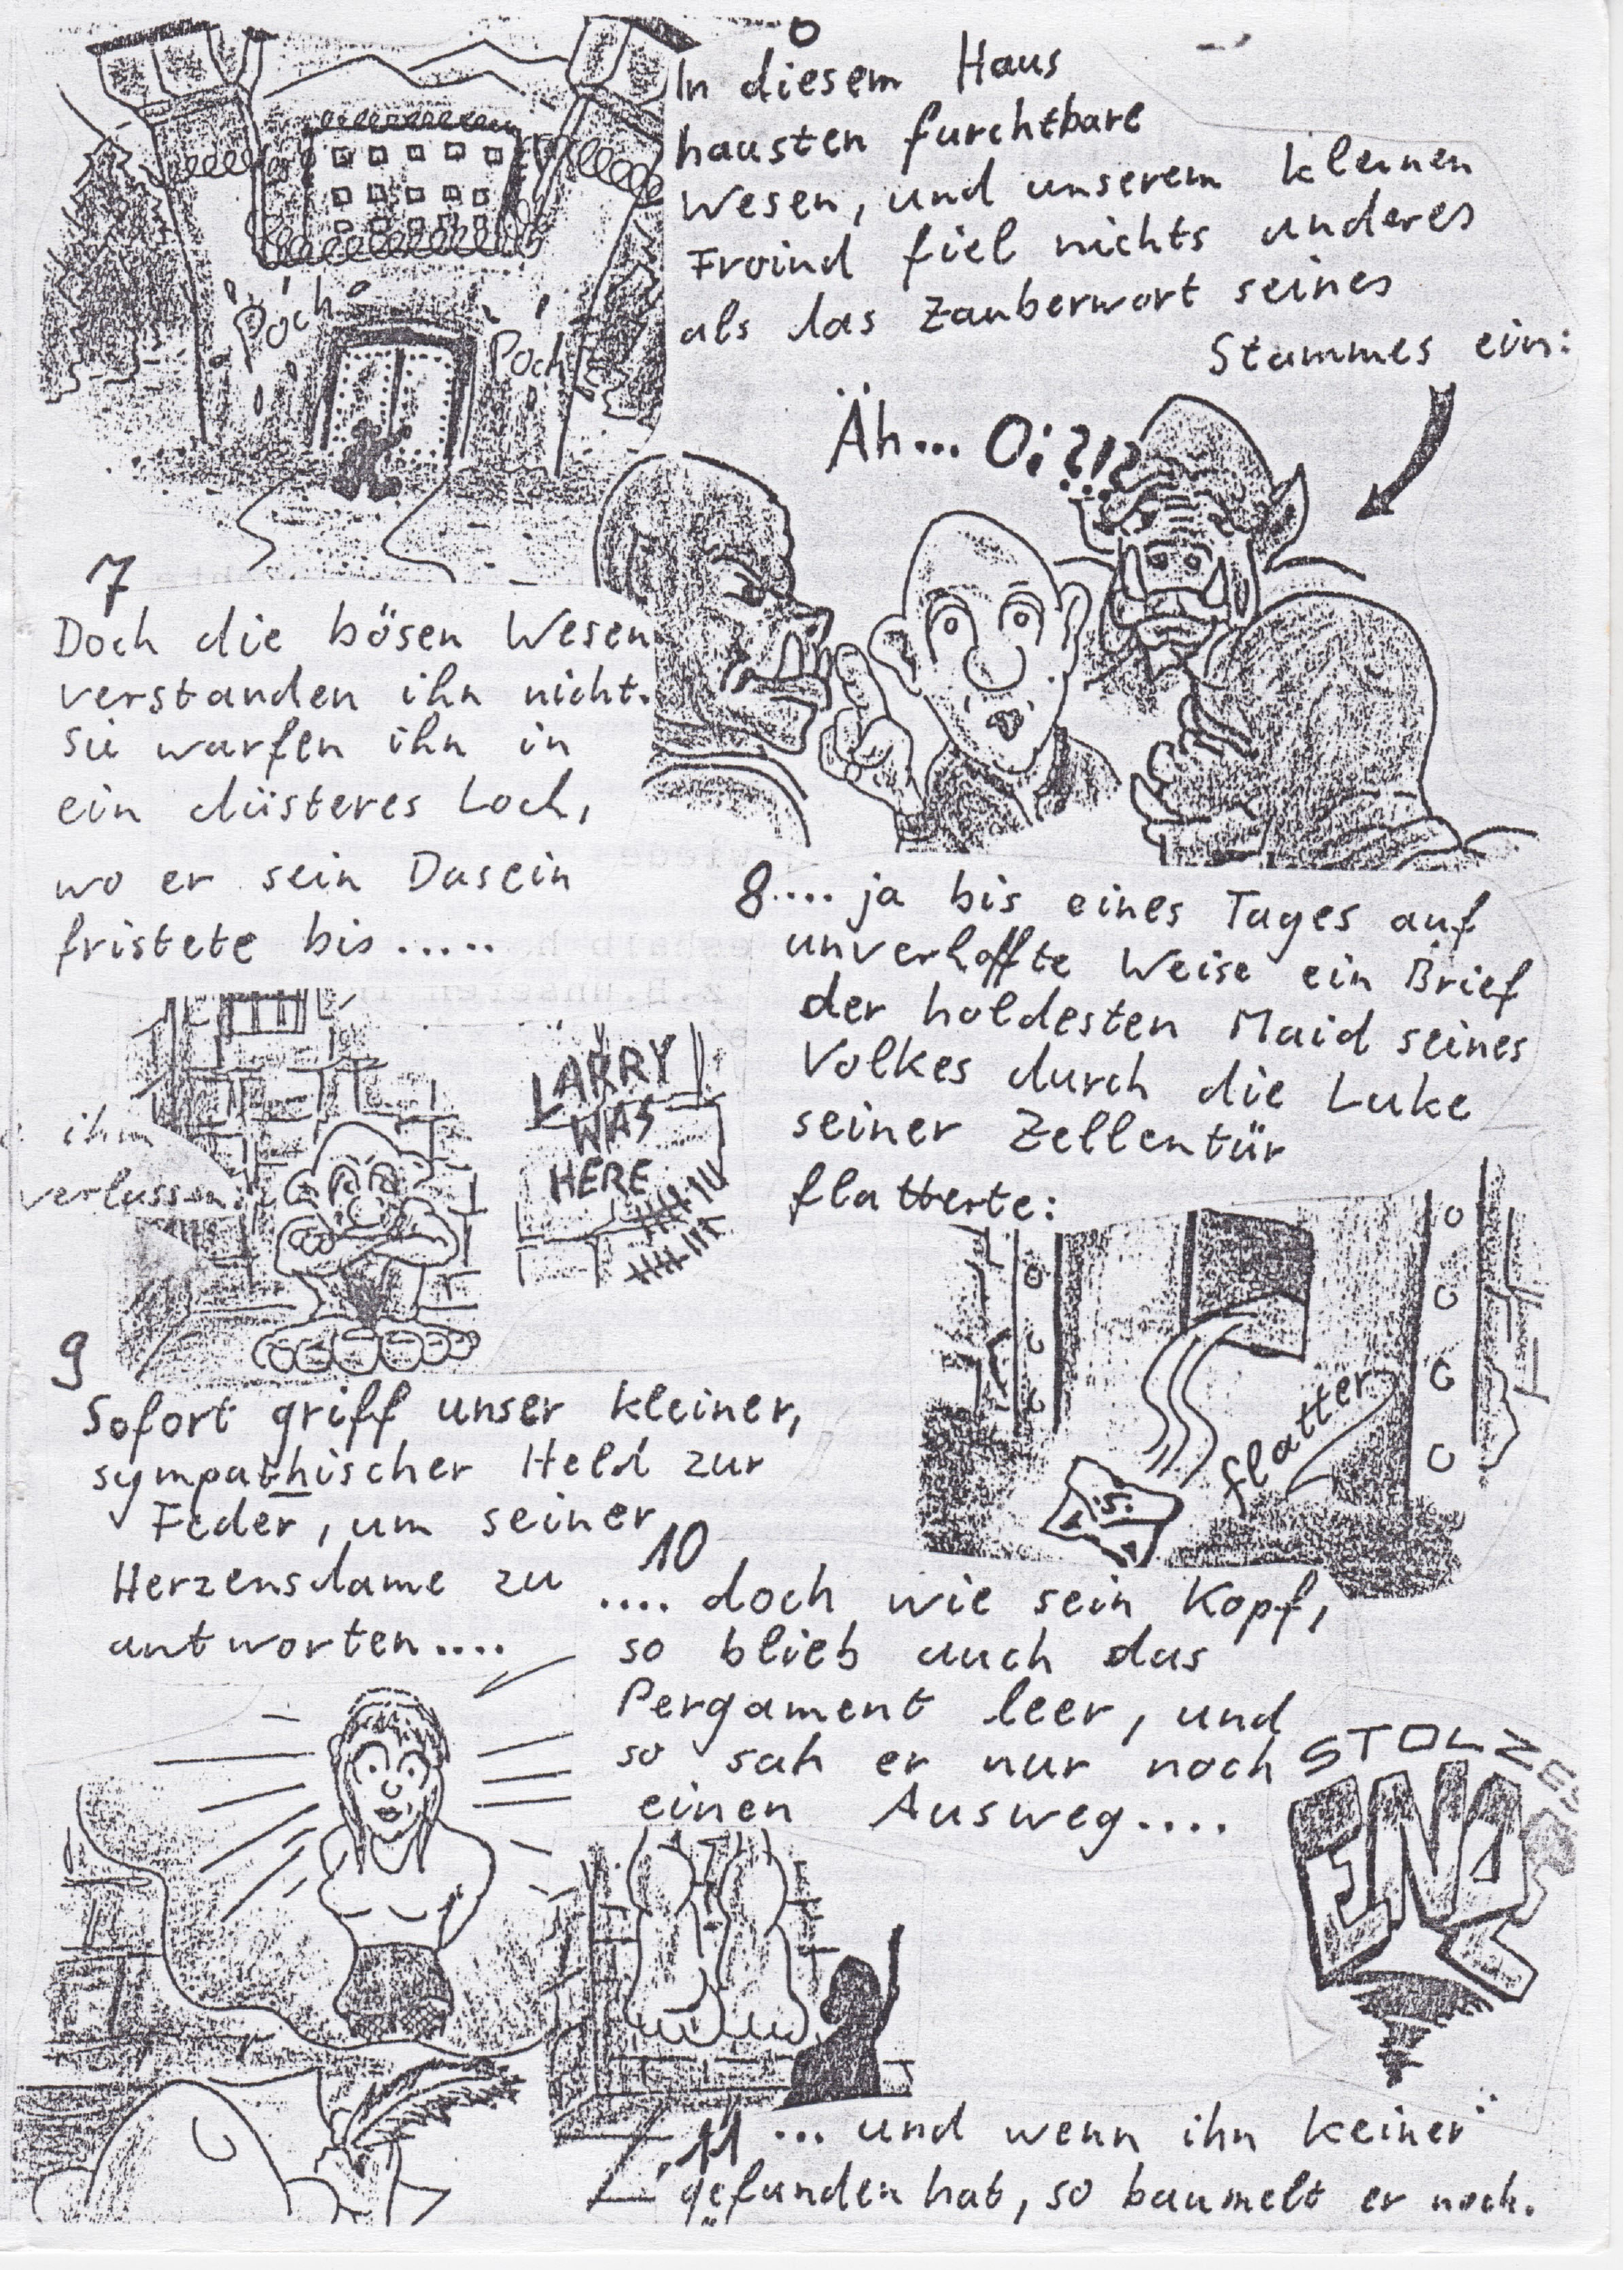 6
In diesem Haus
hausten furchtbare
Wesen, und unserem kleinen
Froind fiel nichts anderes
als das Zauberwort seines
Stammes ein:
Poch
Poch
Äh... Oi?!?
7
Doch die bösen Wesen
verstanden ihn nicht.
Sie warfen ihn in
ein düsteres Loch,
wo er sein Dasein
fristete bis.....
8.... ja bis eines Tages auf
unverhoffte Weise ein Brief
der holdesten Maid seines
Volkes durch die Luke
seiner Zellentür
flatterte:
LARRY
WAS
HERE
ihm
verlassen
flatter
9
Sofort griff unser kleiner,
sympathischer Held zur
Feder, um seiner
Herzensdame zu
antworten....
10
.... doch wie sein Kopf,
so blieb auch das
Pergament leer, und
so sah er nur noch
einen Ausweg....
STOLZES
ENDE
11 ... und wenn ihn keiner
gefunden hat, so baumelt er noch.